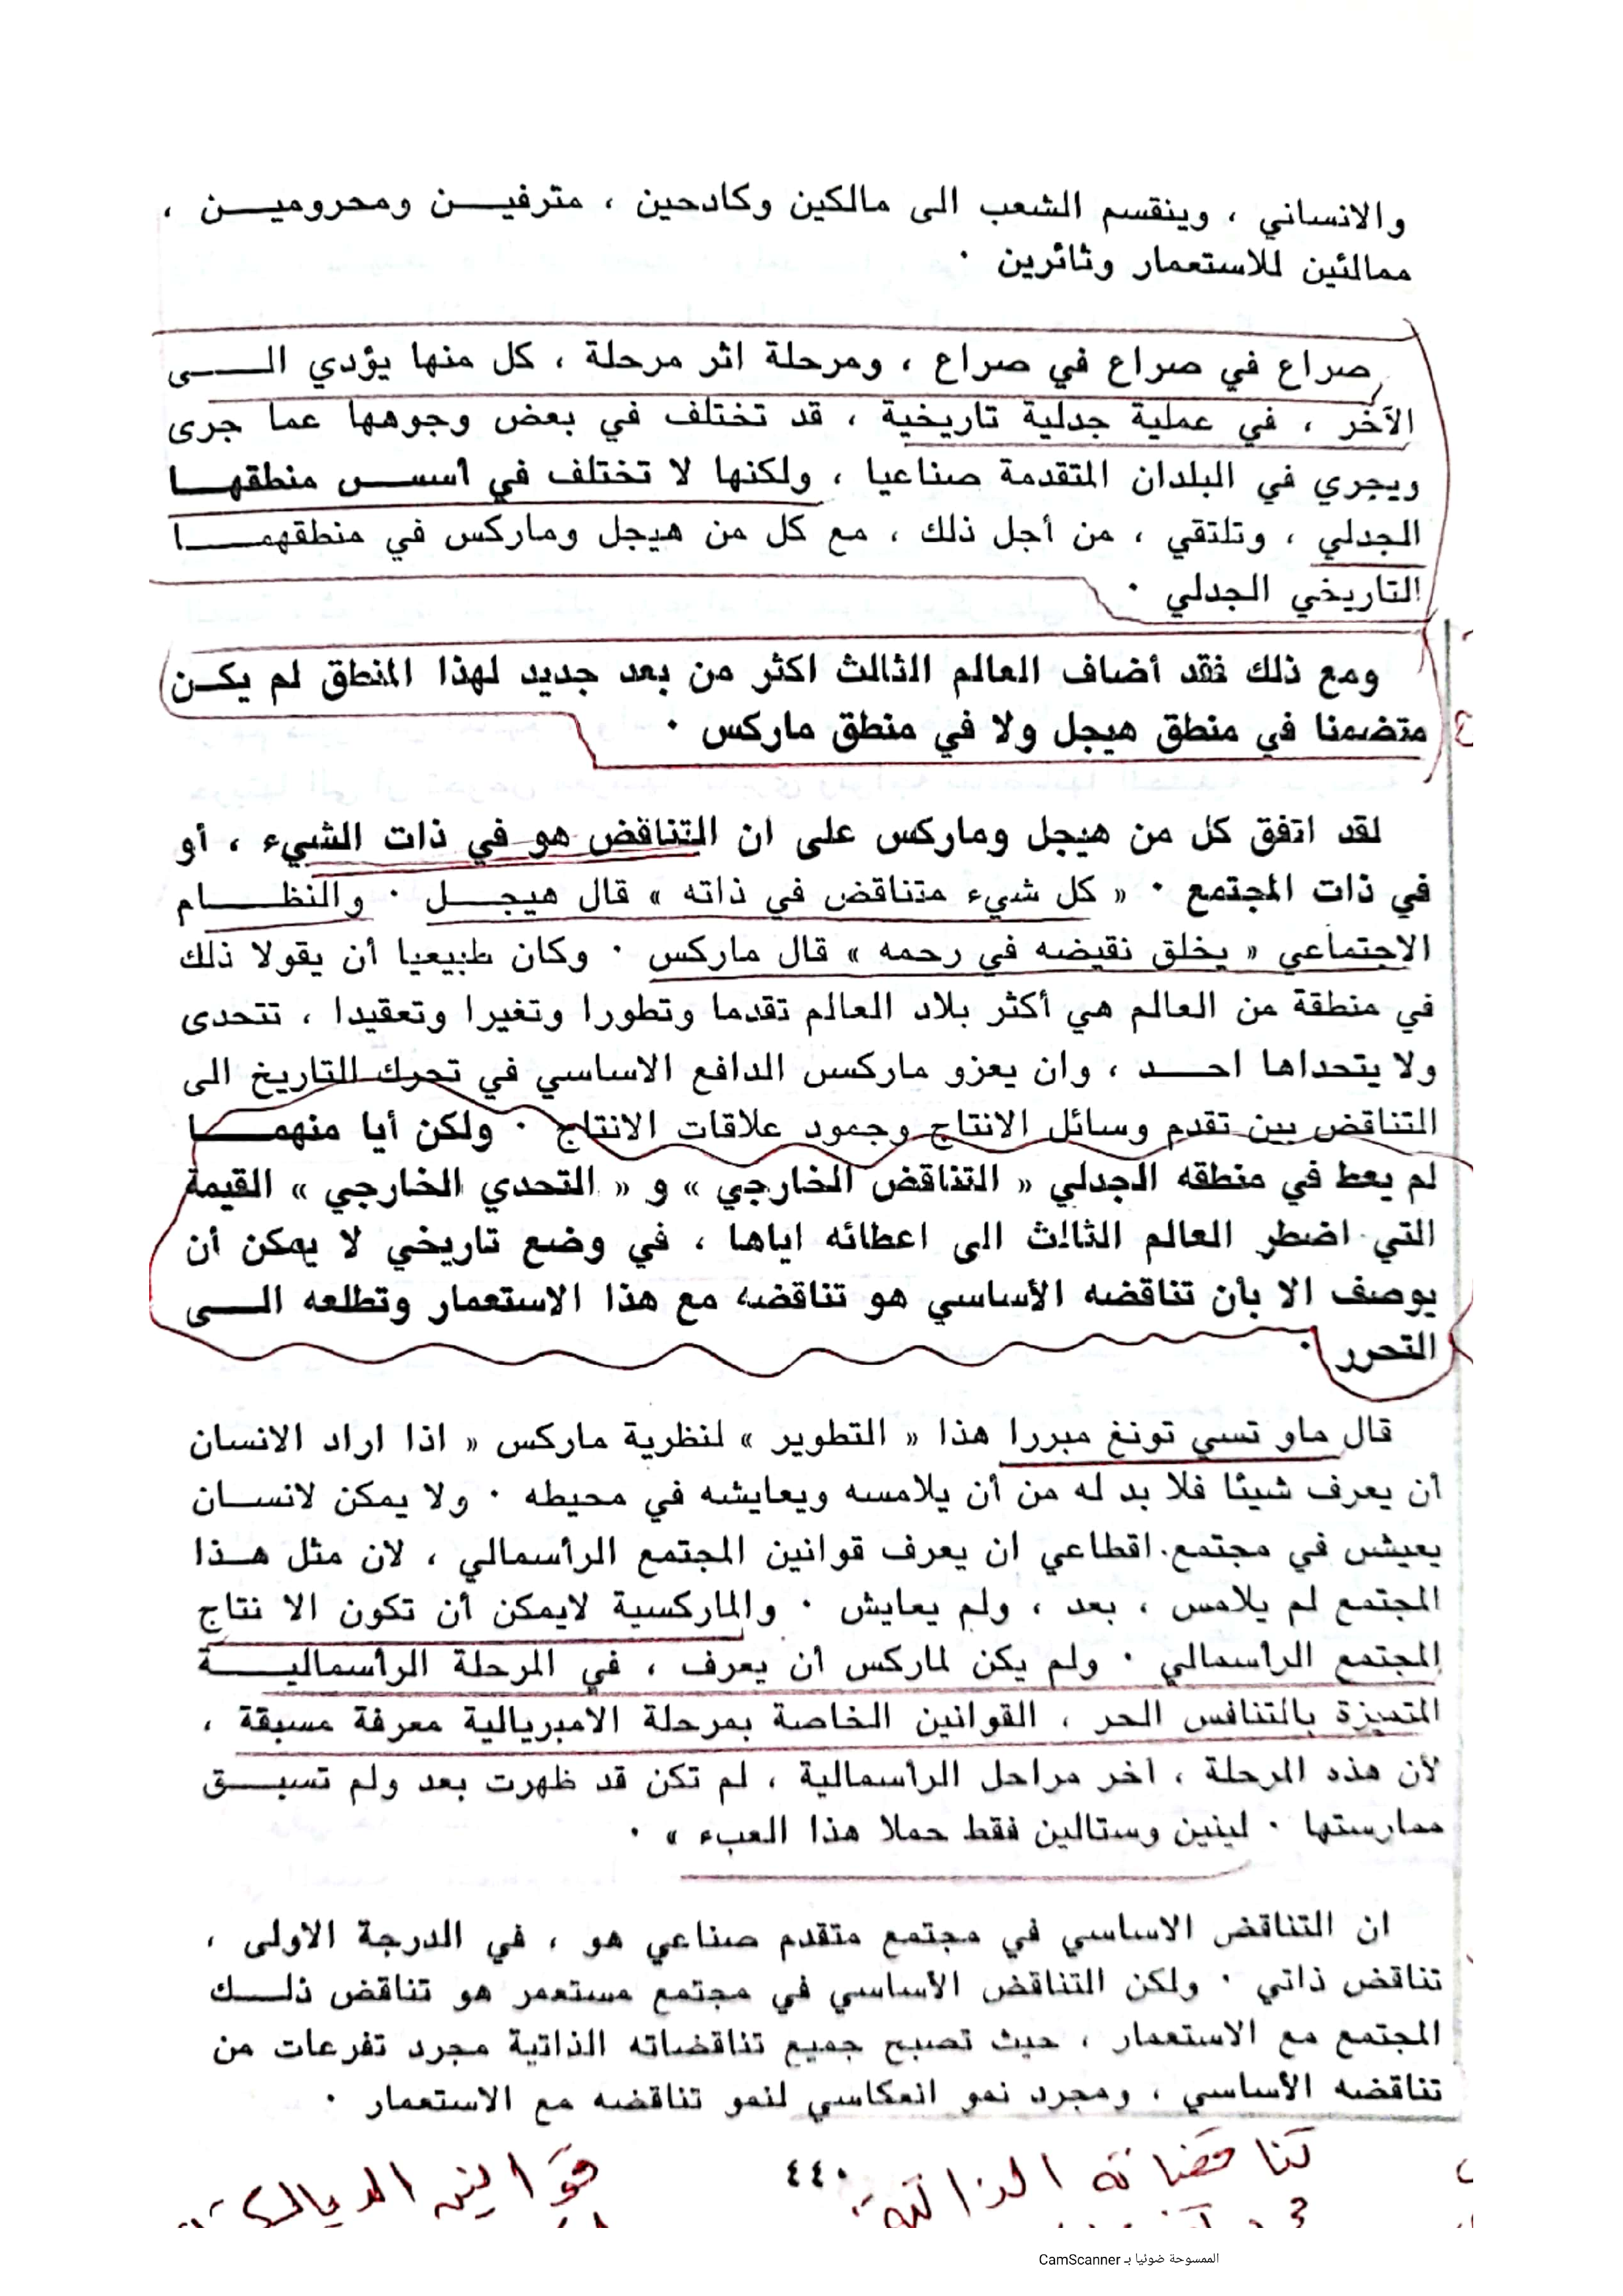 والانساني ، وينقسم الشعب الى مالكين وكادحين ، مترفيـن ومحروميـن ،
ممالئين للاستعمار وثائرين ٠
صراع في صراع في صراع ، ومرحلة اثر مرحلة ، كل منها يؤدي الـى
الآخر ، في عملية جدلية تاريخية ، قد تختلف في بعض وجوهها عما جرى
ويجري في البلدان المتقدمة صناعيا ، ولكنها لا تختلف في أسس منطقهـا
الجدلي ، وتلتقي ، من أجل ذلك ، مع كل من هيجل وماركس في منطقهمـا
التاريخي الجدلي ٠
ومع ذلك فقد أضاف العالم الثالث اكثر من بعد جديد لهذا المنطق لم يكـن
متضمنا في منطق هيجل ولا في منطق ماركس ٠
لقد اتفق كل من هيجل وماركس على ان التناقض هو في ذات الشيء ، أو
في ذات المجتمع ٠ « كل شيء متناقض في ذاته » قال هيجـل ٠ والنظـام
الاجتماعي « يخلق نقيضه في رحمه » قال ماركس ٠ وكان طبيعيا أن يقولا ذلك
في منطقة من العالم هي أكثر بلاد العالم تقدما وتطورا وتغيرا وتعقيدا ، تتحدى
ولا يتحداها احـد ، وان يعزو ماركس الدافع الاساسي في تحرك التاريخ الى
التناقض بين تقدم وسائل الانتاج وجمود علاقات الانتاج ٠ ولكن أيا منهمـا
لم يعط في منطقه الجدلي « التناقض الخارجي » و « التحدي الخارجي » القيمة
التي اضطر العالم الثالث الى اعطائه اياها ، في وضع تاريخي لا يمكن أن
يوصف الا بأن تناقضه الأساسي هو تناقضه مع هذا الاستعمار وتطلعه الـى
التحرر ٠
قال ماو تسي تونغ مبررا هذا « التطوير » لنظرية ماركس « اذا اراد الانسان
أن يعرف شيئا فلا بد له من أن يلامسه ويعايشه في محيطه ٠ ولا يمكن لانسـان
يعيش في مجتمع اقطاعي ان يعرف قوانين المجتمع الرأسمالي ، لان مثل هـذا
المجتمع لم يلامس ، بعد ، ولم يعايش ٠ والماركسية لايمكن أن تكون الا نتاج
المجتمع الرأسمالي ٠ ولم يكن لماركس أن يعرف ، في المرحلة الرأسماليـة
المتميزة بالتنافس الحر ، القوانين الخاصة بمرحلة الامبريالية معرفة مسبقة ،
لأن هذه المرحلة ، اخر مراحل الرأسمالية ، لم تكن قد ظهرت بعد ولم تسبـق
ممارستها ٠ لينين وستالين فقط حملا هذا العبء » ٠
ان التناقض الاساسي في مجتمع متقدم صناعي هو ، في الدرجة الاولى ،
تناقض ذاتي ٠ ولكن التناقض الأساسي في مجتمع مستعمر هو تناقض ذلـك
المجتمع مع الاستعمار ، حيث تصبح جميع تناقضاته الذاتية مجرد تفرعات من
تناقضه الأساسي ، ومجرد نمو انعكاسي لنمو تناقضه مع الاستعمار ٠
تناقضاته الذاتية
٤٤٠
قوانين
الممسوحة ضوئيا بـ CamScanner